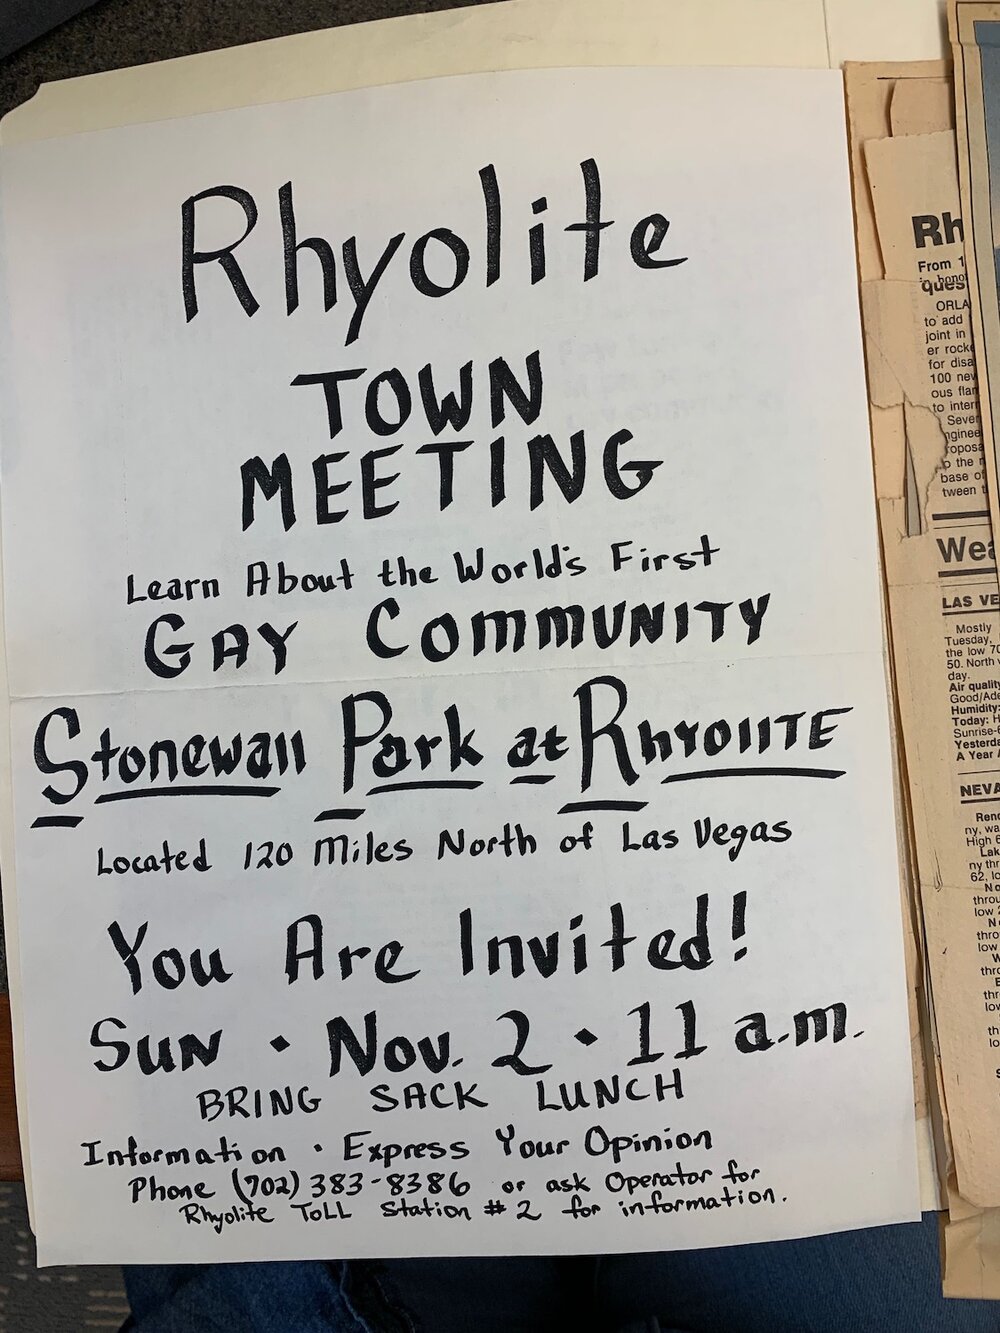 Rhyolite
TOWN
MEETING
Learn About the World's First
GAY COMMUNITY
Stonewall Park at RHYOLITE
Located 120 Miles North of Las Vegas
You Are Invited!
Sun • Nov. 2 • 11 a.m.
BRING SACK LUNCH
Information • Express Your Opinion
Phone (702) 383-8386 or ask Operator for
Rhyolite TOLL Station # 2 for information.
Rh
From 1
ques
ORLA
to add
joint in
er rocke
for disa
100 new
ous flam
to intern
Sever
base of
tween t
Wea
LAS VE
Mostly
Tuesday,
the low 70
50. North
day.
Air quality
Good/Ade
Humidity:
Today: H
Sunrise-6
Yesterda
A Year A
NEVA
Reno
ny, wa
High 6
Lak
ny thr
62, lo
No
throu
low 2
N
thro
low
W
thr
E
thr
low
th
lo